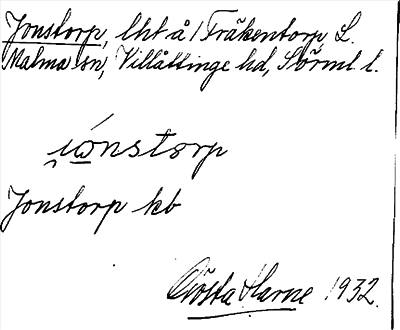 Jonstorp, lht å 1 Träkentorp L.
Malma sn, Villåttinge hd, Sörml. l.
i̯ωnstorp
Jonstorp kb
Gösta Harne 1932.